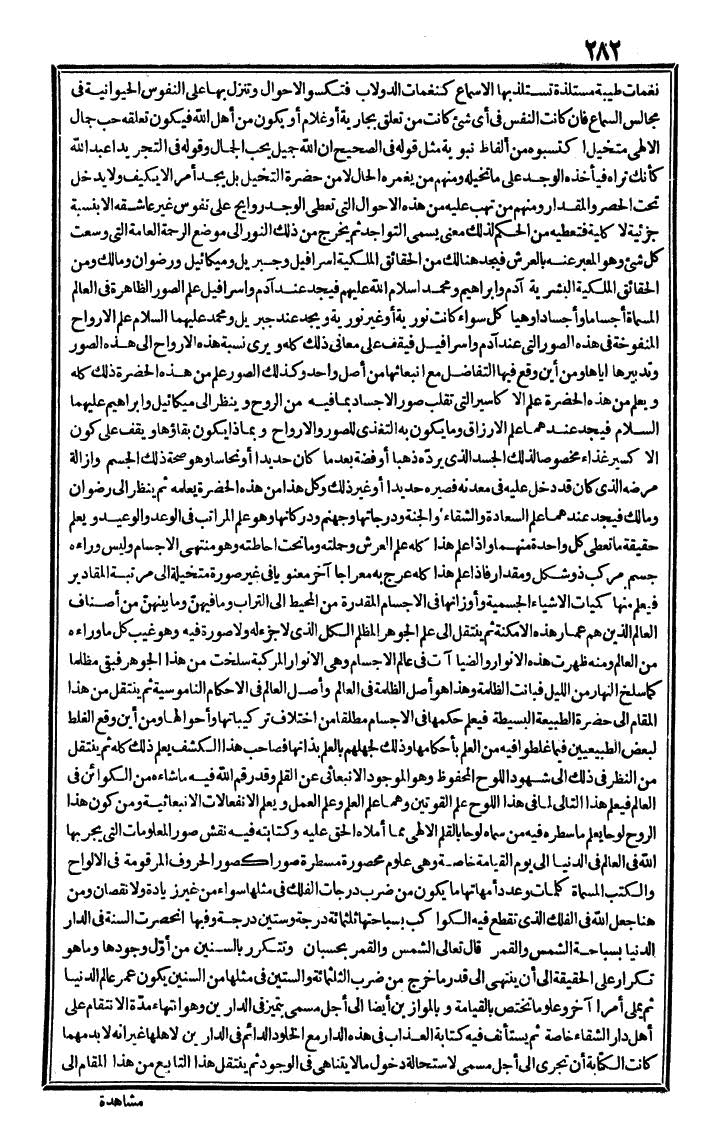 ٢٨٢
نغمات طيبة مستلذة تستلذ بها الاسماع كنغمات الدولاب فتكسو الاحوال وتنزل بها على النفوس الحيوانية فى
مجالس السماع فان كانت النفس فى أى شئ كانت من تعلق بجارية أو غلام أو يكون من أهل الله فيكون تعلقه حب جمال
الالهى متخيل اكتسبوه من ألفاظ نبوية مثل قوله فى الصحيح ان الله جميل يحب الجمال وقوله فى التجريد اعبد الله
كأنك تراه فيأخذه الوجد على ما تخيله ومنهم من يغمره الحال لا من حضرة التخيل بل يجد أمرا لا يتكيف ولا يدخل
تحت الحصر والمقدار ومنهم من تهب عليه من هذه الاحوال التى تعطى الوجد روايح على نفوس غير عاشقه الا بنسبة
جزئية لا كلية فتعطيه من الحكم لذلك معنى يسمى التواجد ثم يخرج من ذلك النور الى موضع الرحمة العامة التى وسعت
كل شئ وهو المعبر عنه بالعرش فيجد هنالك من الحقائق الملكية اسرافيل وجبريل وميكائيل ورضوان ومالك ومن
الحقائق الملكية البشرية آدم وابراهيم ومحمد اسلام الله عليهم فيجد عند آدم واسرافيل علم الصور الظاهرة فى العالم
المسماة أجساما وأجسادا وهياكل سواء كانت نورية أو غير نورية ويجد عند جبريل ومحمد عليهما السلام علم الارواح
المنفوخة فى هذه الصور التى عند آدم واسرافيل فيقف على معانى ذلك كله ويرى نسبة هذه الارواح الى هذه الصور
وتدبيرها اياها ومن أين وقع فيها التفاضل مع انبعاثها من أصل واحد وكذلك الصور علم من هذه الحضرة ذلك كله
ويعلم من هذه الحضرة علم الاكاسير التى تقلب صور الاجساد بما فيه من الروح وينظر الى ميكائيل وابراهيم عليهما
السلام فيجد عندهما علم الارزاق وما يكون به التغذى للصور والارواح وبماذا يكون بقاؤها ويقف على كون
الاكسير غذاء مخصوصا لذلك الجسد الذى يرده ذهبا أو فضة بعدما كان حديدا أو نحاسا وهو صحة ذلك الجسم وازالة
مرضه الذى كان قد دخل عليه فى معدنه فصيره حديدا أو غير ذلك وكل هذا من هذه الحضرة يعلمه ثم ينظر الى رضوان
ومالك فيجد عندهما علم السعادة والشقاء والجنة ودرجاتها وجهنم ودركاتها وهو علم المراتب فى الوعد والوعيد ويعلم
حقيقة ما تعطى كل واحدة منهما واذا علم هذا كله علم العرش وحملته وما تحت احاطته وهو منتهى الاجسام وليس وراءه
جسم مركب ذو شكل ومقدار فاذا علم هذا كله عرج به معراجا آخر معنويا فى غير صورة متخيلة الى مرتبة المقادير
فيعلم منها كميات الاشياء الجسمية وأوزانها فى الاجسام المقدرة من المحيط الى التراب وما فيهن وما بينهن من أصناف
العالم الذين هم عمار هذه الامكنة ثم ينتقل الى علم الجوهر المظلم الكل الذى لا جزء له ولا صورة فيه وهو غيب كل ما وراءه
من العالم ومنه ظهرت هذه الانوار والضيا آت فى عالم الاجسام وهى الانوار المركبة سلخت من هذا الجوهر فبقى مظلما
كما سلخ النهار من الليل فبانت الظلمة وهذا هو أصل الظلمة فى العالم وأصل العالم فى الاحكام الناموسية ثم ينتقل من هذا
المقام الى حضرة الطبيعة البسيطة فيعلم حكمها فى الاجسام مطلقا من اختلاف تركيباتها وأحوالها ومن أين وقع الغلط
لبعض الطبيعيين فيما غلطوا فيه من العلم بأحكامها وذلك لجهلهم بالعلم بذاتها فصاحب هذا الكشف يعلم ذلك كله ثم ينتقل
من النظر فى ذلك الى شهود اللوح المحفوظ وهو الموجود الانبعاثى عن القلم وقد رقم الله فيه ما شاءه من الكوائن فى
العالم فيعلم هذا التالى لما فى هذا اللوح علم القوتين وهما علم العلم وعلم العمل ويعلم الانفعالات الانبعاثية ومن كون هذا
الروح لوحا يعلم ما سطره فيه من سماه لوحا بالقلم الالهى مما أملاه الحق عليه وكتابته فيه نقش صور المعلومات التى يجريها
الله فى العالم فى الدنيا الى يوم القيامة خاصة وهى علوم محصورة مسطرة صورا كصور الحروف المرقومة فى الالواح
والكتب المسماة كلمات وعدد أمهاتها ما يكون من ضرب درجات الفلك فى مثلها سواء من غير زيادة ولا نقصان ومن
هنا جعل الله فى الفلك الذى تقطع فيه الكواكب بسباحتها ثلثمائة درجة وستين درجة وفيها انحصرت السنة فى الدار
الدنيا بسباحة الشمس والقمر قال تعالى الشمس والقمر بحسبان وتتكرر بالسنين من أوّل وجودها وما هو
تكرار على الحقيقة الى أن ينتهى الى قدر ما خرج من ضرب الثلثمائة والستين فى مثلها من السنين يكون عمر عالم الدنيا
ثم يملى أمرا آخر وعلوما تختص بالقيامة وبالموازين أيضا الى أجل مسمى يتميز فى الدارين وهو انتهاء مدّة الانتقام على
أهل دار الشقاء خاصة ثم يستأنف فيه كتابة العذاب فى هذه الدار مع الخلود الدائم فى الدارين لاهلها غير انه لا بد مهما
كانت الكتابة أن تجرى الى أجل مسمى لاستحالة دخول ما لا يتناهى فى الوجود ثم ينتقل هذا التابع من هذا المقام الى
مشاهدة